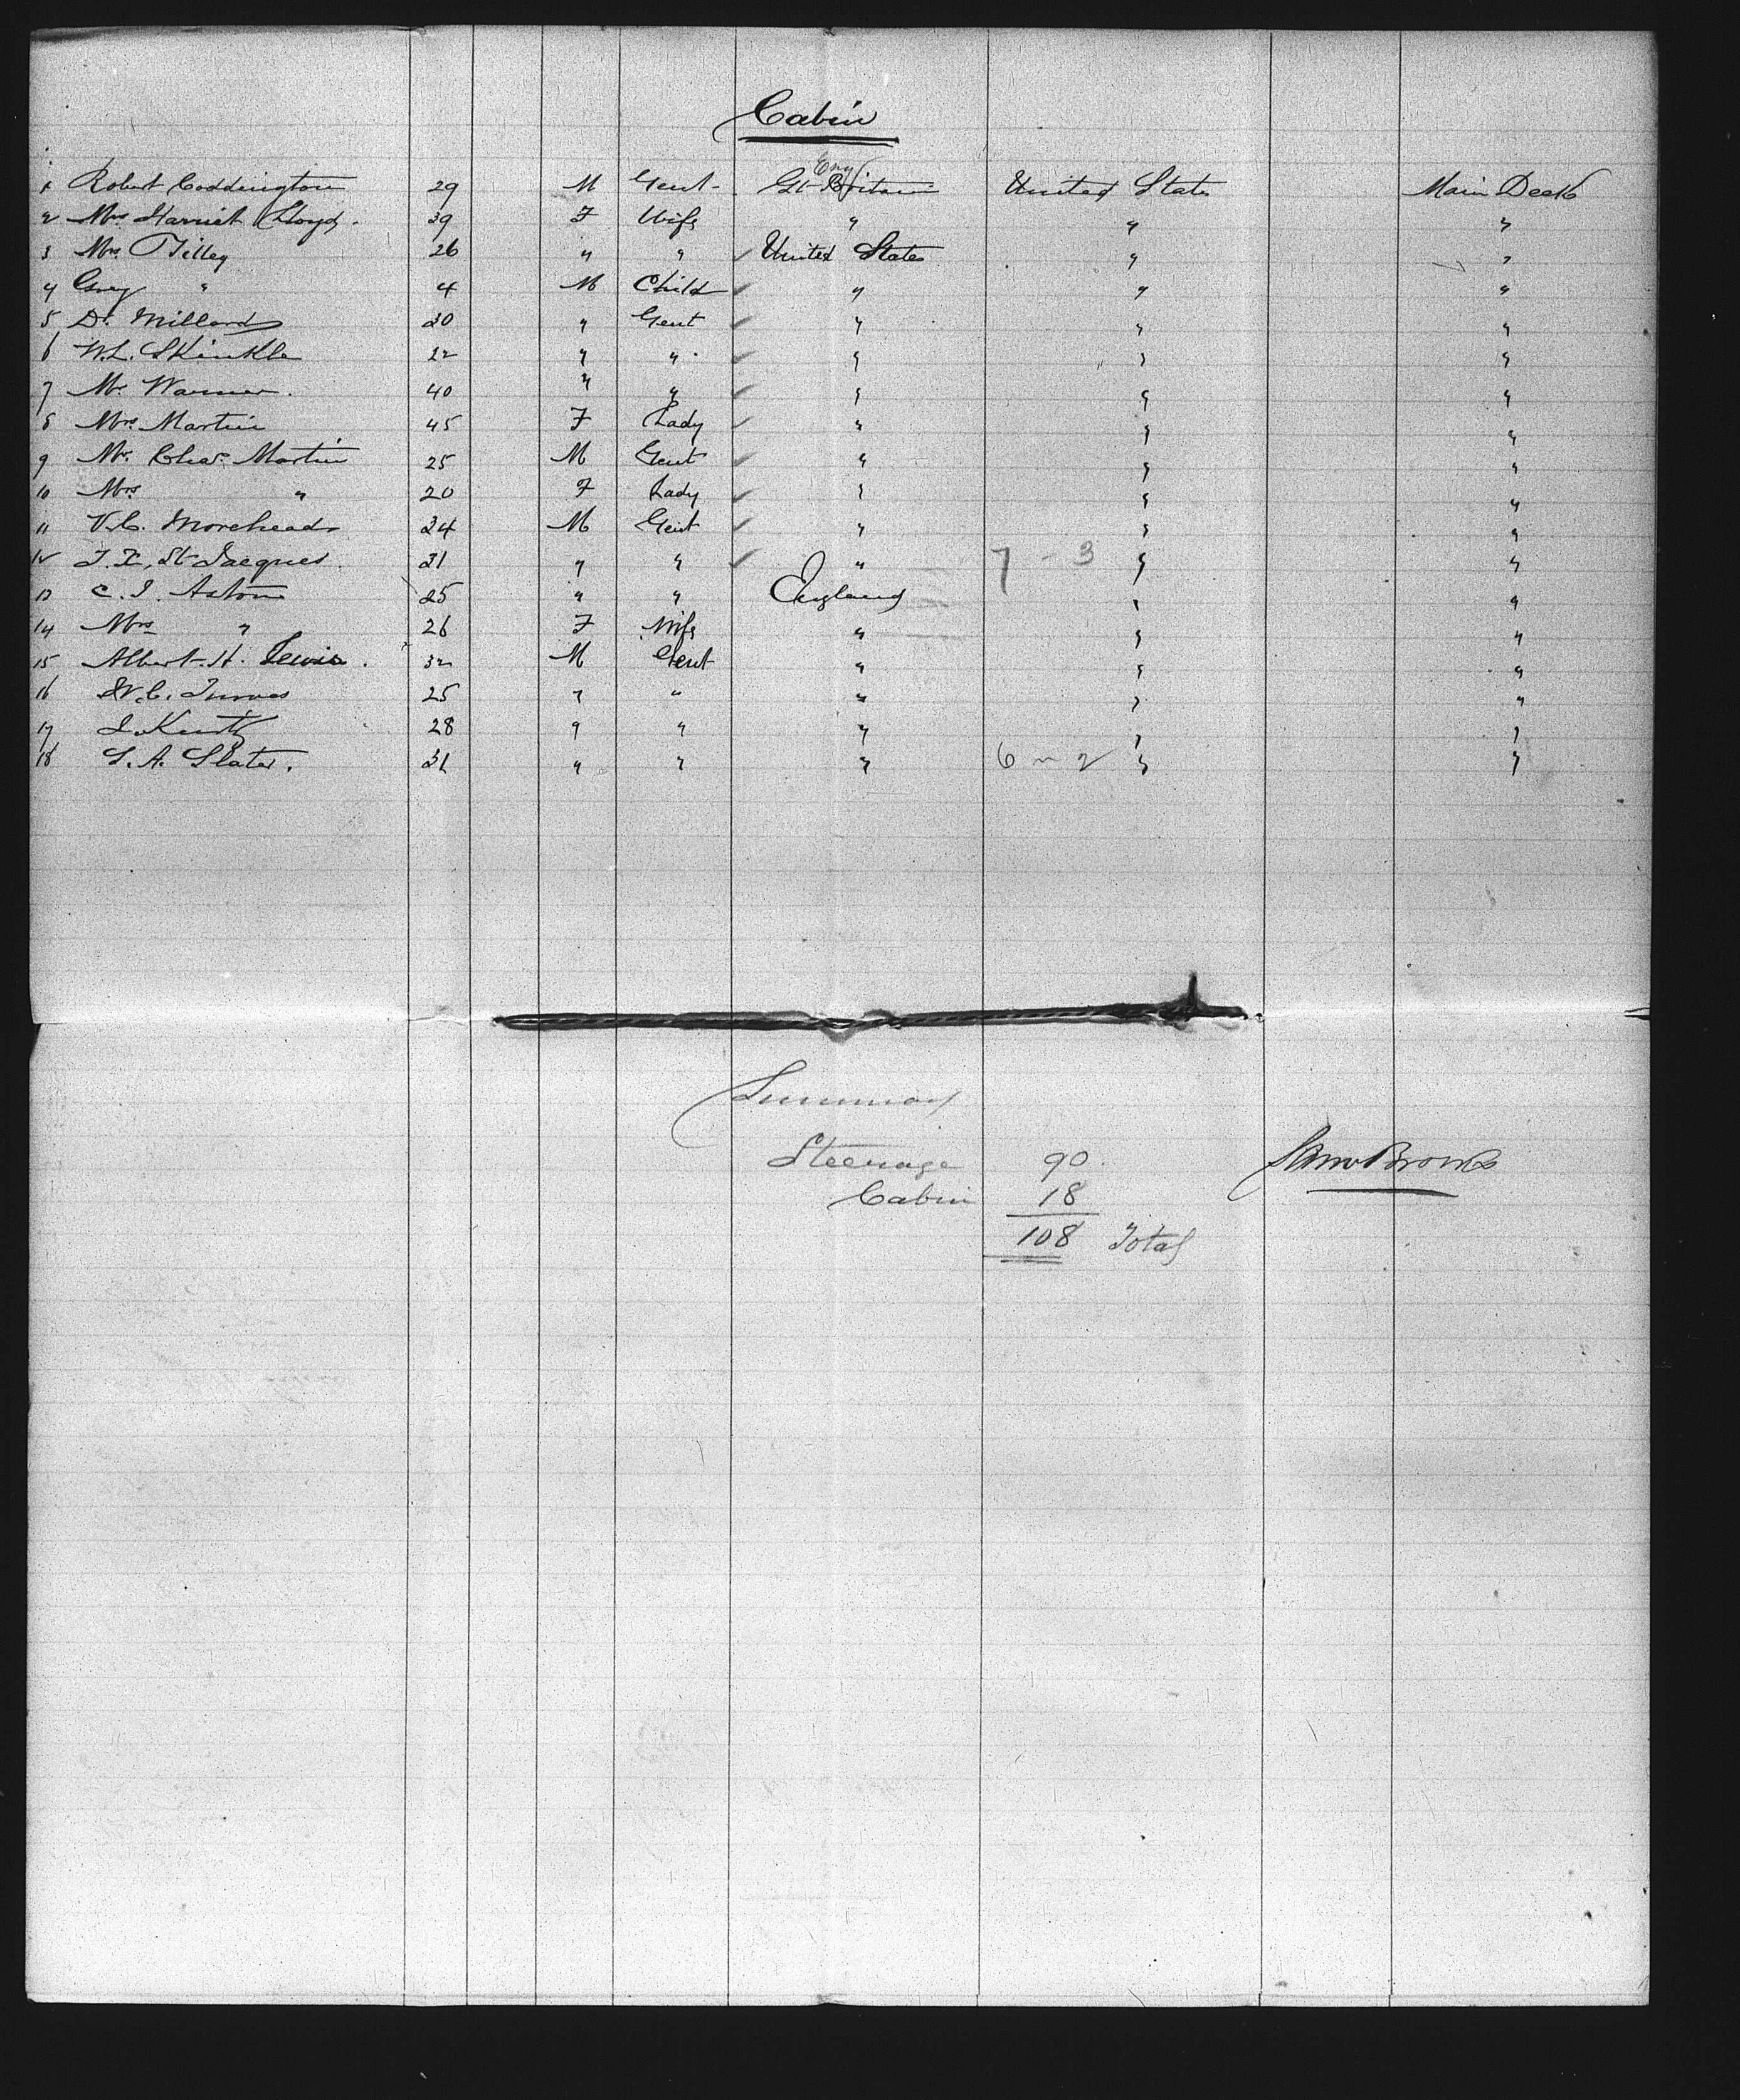 Cabin
Eng
1 Robert Coddington 29 M Gent Gt Britain United States Main Deck
2 Mrs Harriet Lloyd. 39 F Wife " " "
3 Mrs. Tilley 26 " " United States " "
4 Guy " 4 M Child " " "
5 Dr. Millard 30 " Gent " " "
6 W.L. Skinkle 22 " " " " "
7 Mr. Warner. 40 " " " " "
8 Mrs. Martin 45 F Lady " " "
9 Mr. Chas. Martin 25 M Gent " " "
10 Mrs " 20 F Lady " " "
11 V.C. Morehead 24 M Gent " " "
12 St Jacques. 31 " " " 7 - 3 " "
13 C. I. Aston 25 " " England " "
14 Mrs " 26 F Wife " " "
15 Albert. H. Lewis. 32 M Gent " " "
16 25 " " " " "
17 28 " " " " "
18 S. A. Slater. 31 " " " 6 2 " "
Summary
Steerage 90.
Cabin 18
108 Total
Brooks